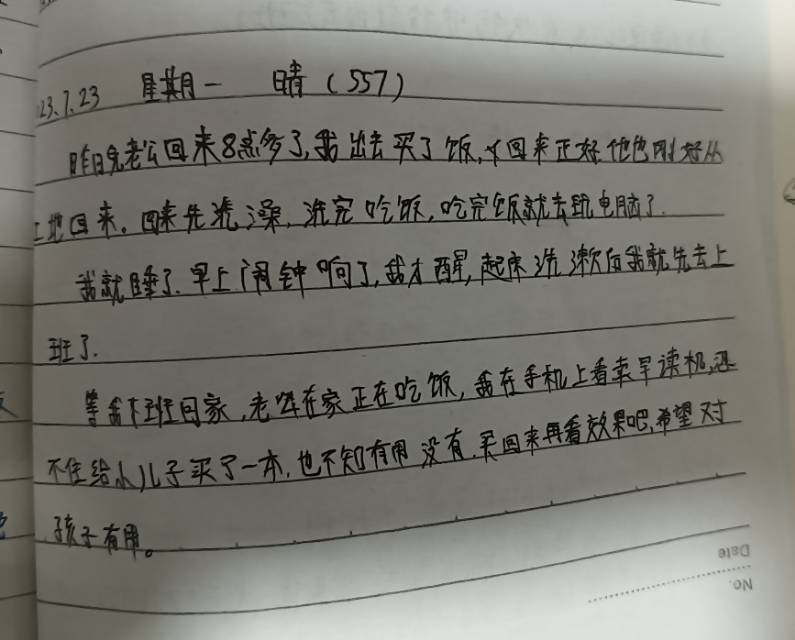 23.7.23 星期一 晴(557)
昨日晚老公回来8点多了,我出去买了饭,回来正好他也刚好从
工地回来。回来先洗澡,洗完吃饭,吃完饭就去玩电脑了.
我就睡了.早上闹钟响了,我才醒,起床洗漱后我就先去上
班了.
等我下班回家,老公在家正在吃饭,我在手机上看卖早读机,忍
不住给小儿子买了一本,也不知有用没有.买回来再看效果吧,希望对
孩子有用。
Date
No.